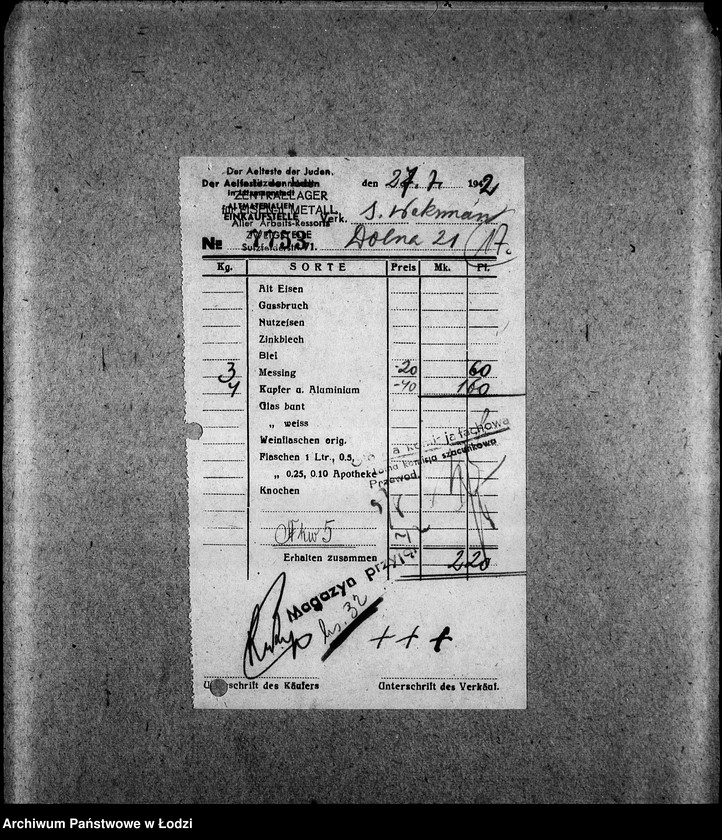 Der Aelteste der Juden.
Der Aelteste der Juden
in Litzmannstadt
ZENTRALLAGER
ALTMATERIALIEN
METALL
EINKAUFSTELLE
Aller Arbeits-Ressorts
ZWEIGSTELLE
Sulzfelderstr. 71.
den 27. 7. 1942
Verk. S. Wekman
№ 7753 Dolna 21 17.
Kg. SORTE Preis Mk. Pf.
Alt Eisen
Gussbruch
Nutzeisen
Zinkblech
Blei
3 Messing -20 60
4 Kupfer u. Aluminium -40 160
Glas bunt
„ weiss
Weinflaschen orig.
Flaschen 1 Ltr., 0.5,
„ 0.25, 0.10 Apotheke
Knochen
komisja fachowa
komisja szacunkowa
Przewod.
kw 5
Erhalten zusammen 2 20
Magazyn przyjął
32
+ + +
Unterschrift des Käufers Unterschrift des Verkäuf.
Archiwum Państwowe w Łodzi